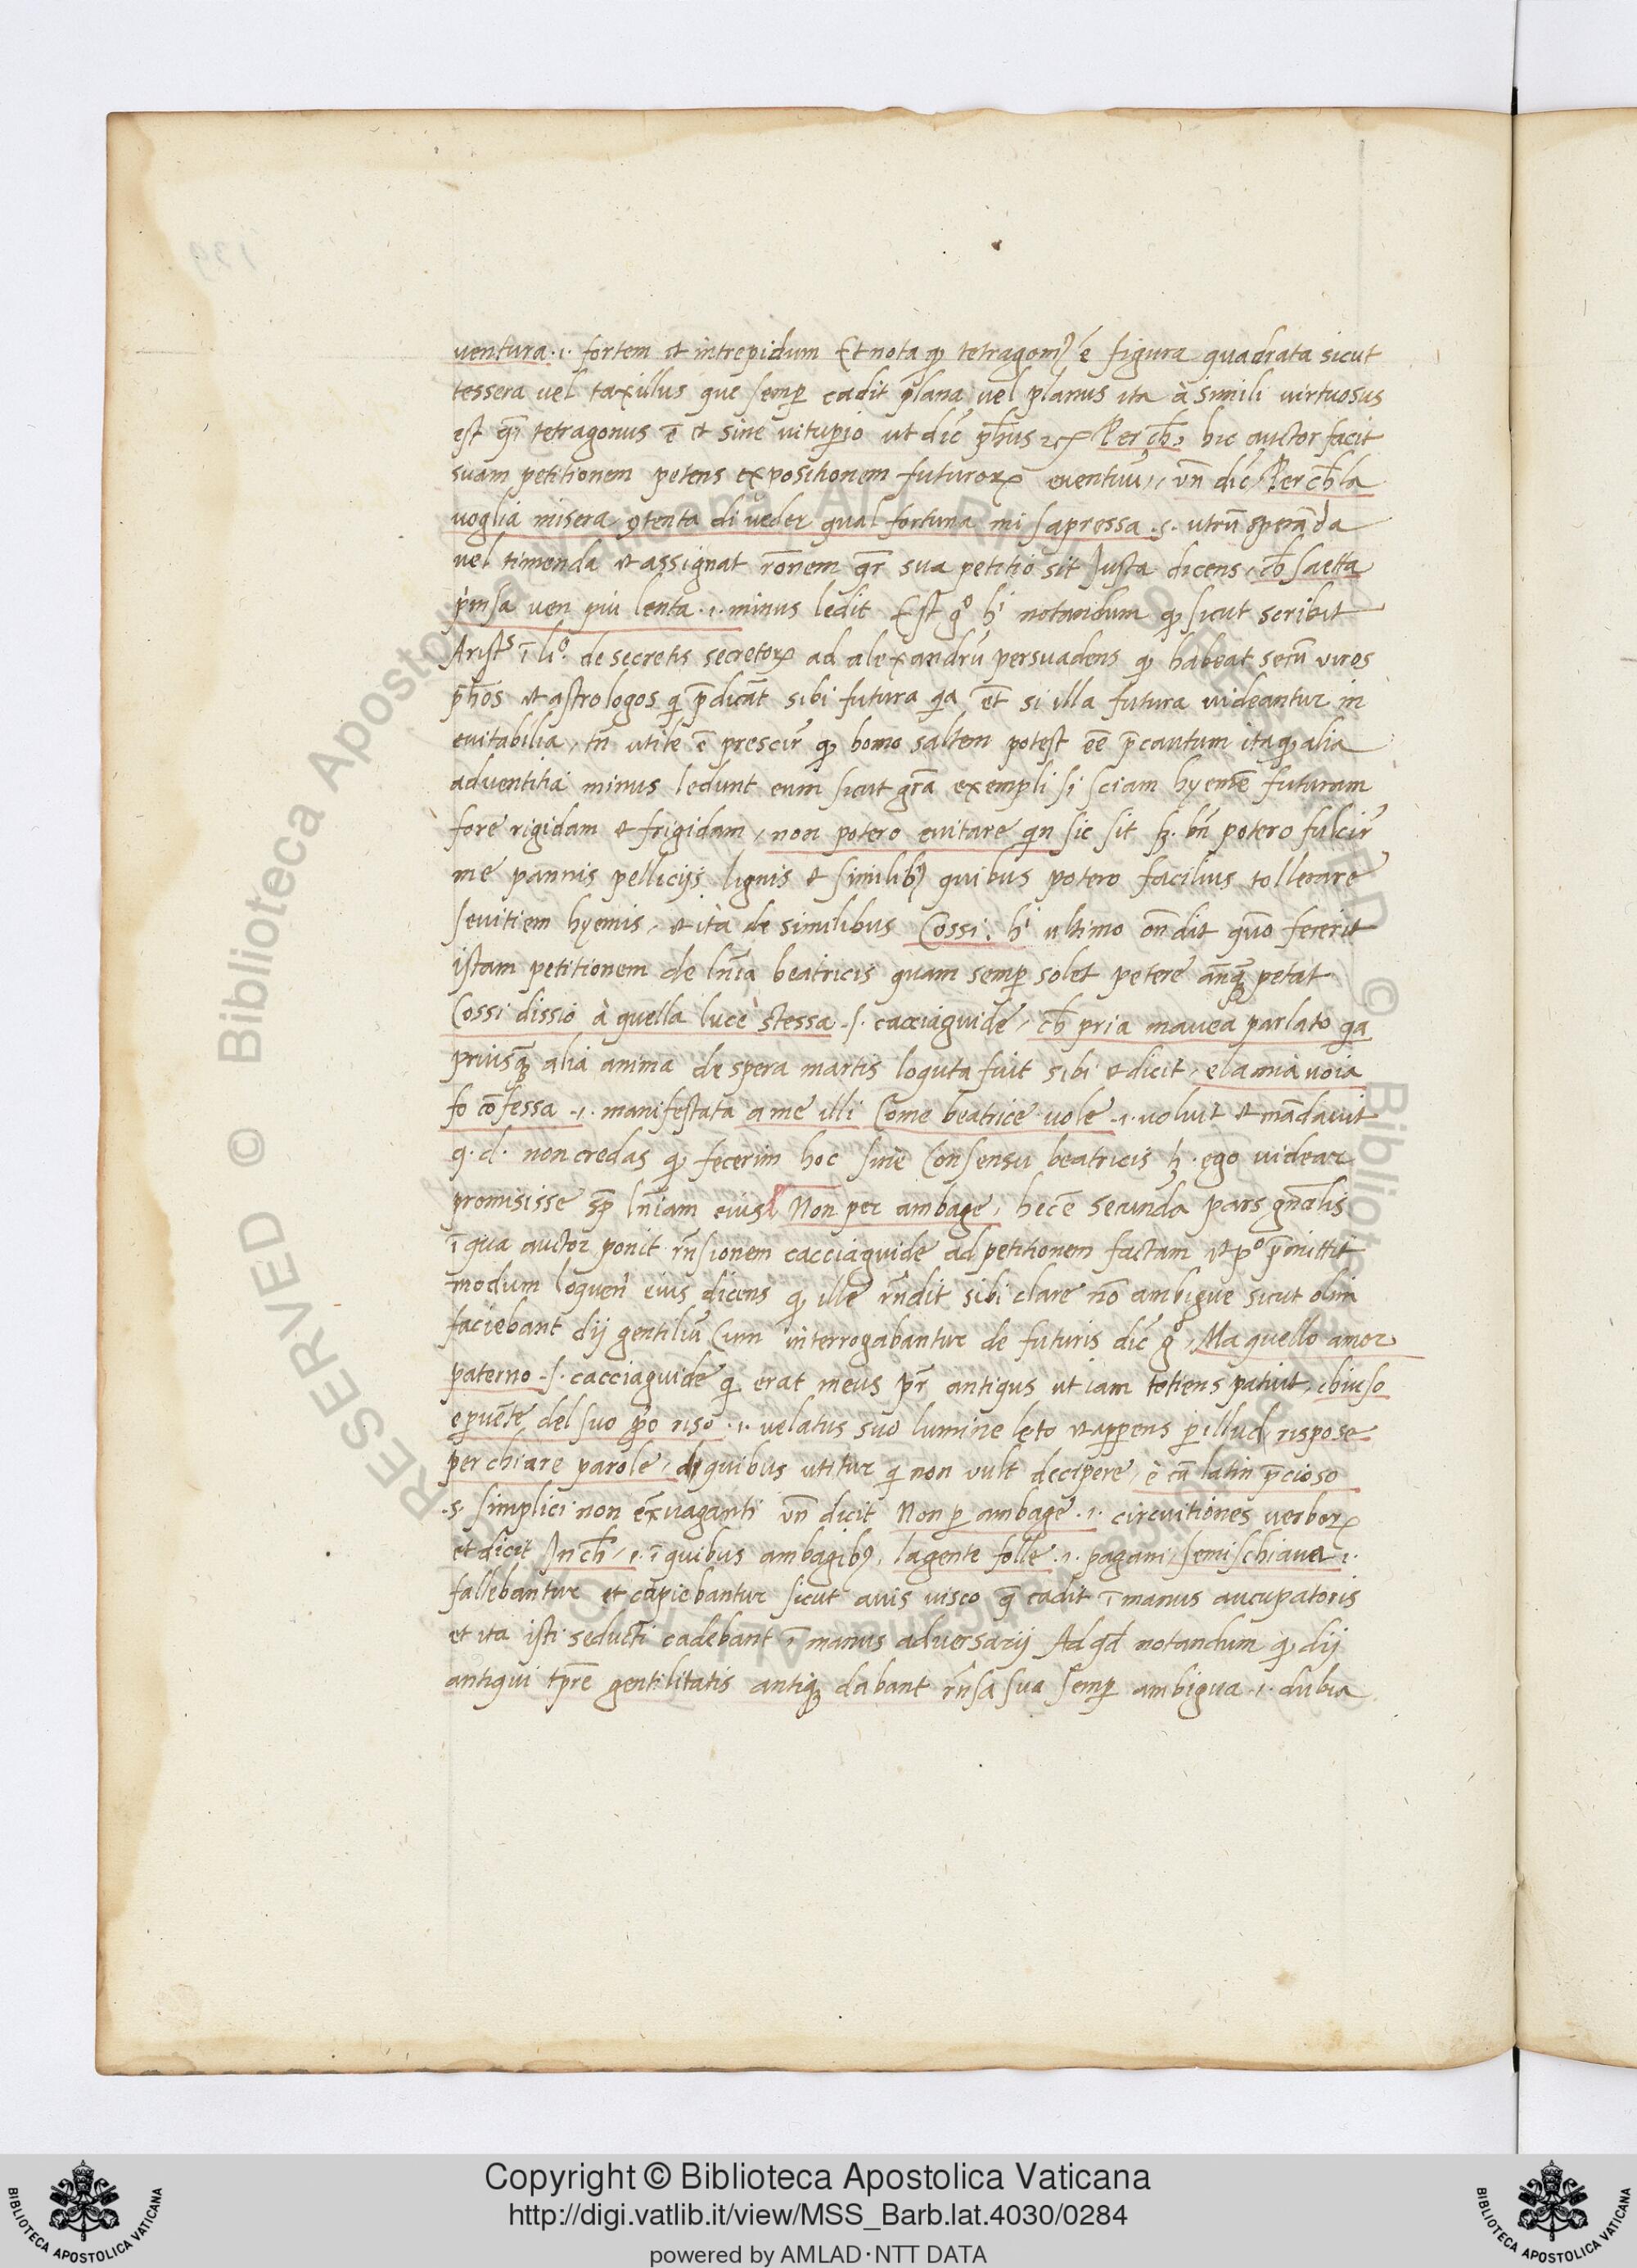 ventura .i. fortem et intrepidum Et nota qꝫ tetragonꝰ é figura quadrata sicut
tessera vel taxillus que semp̱ cadit plana vel planus ita à simili virtuosus
est qͣi tetragonus ē et sine vitup̱io ut dić pħus ⁊cͣ Per cħ, hic auctor facit
suam petitionem petens expositionem futuroꝝ eventuū, vñ dić Per cħ la
voglia misera ꝯtenta di veder qual fortuna mi sapressa .s. utrū speranda
vel timenda et assignat rōnem qͣr sua petitio sit Justa dicens, cħ saetta
p̍visa ven più lenta .i. minus ledit Est gͦ hͥ notandum qꝫ sicut scribit
Aristˢ ī liº. de secretis secretoꝝ ad alexandrū persuadens qꝫ habeat secū viros
pħos et astrologos qͥ p̄dicāt sibi futura qͥa et̄ si illa futura videantur in
evitabilia, tn̄ utile ē presciŕ qꝫ homo saltem potest eē p̄cautum ita qꝫ alia
adventitia minus ledunt eum sicut gr̄a exempli si sciam hyemē futuram
fore rigidam et frigidam, non potero evitare qͥn sic sit sꝫ. bn̄ potero fulciŕ
me pannis pellicijs lignis et similibꝫ quibus potero facilius tollerare
sevitiem hyemis, et ita de similibus Cossi. hͥ ultimo on̄dit quō fecerit
istam petitionem de ln̄ia beatricis quam semp̱ solet petere an̄qꝫ petat
Cossi dissio à quella luce stessa .s. cacciaguide, cħ pria mavea parlato qͥa
priusqꝫ alia anima de spera martis loquta fuit sibi et dicit, e la mia voia
fo cōfessa .i. manifestata a me illi Come beatrice vole .i. voluit et mādavit
q.d. non credas qꝫ fecerim hoc sine Consensu beatricis lꝫ. ego videar
promisisse sp̱ ln̄iam eius Non per ambage, hec ē secunda pars gn̄alis
ī qua auctor ponit rn̄sionem cacciaguide ad petitionem factam et pº p̄mittit
modum loquen̍ eius dicens qꝫ ille rn̄dit sibi clare nō ambigue sicut olim
faciebant dij gentiliū Cum interrogabantur de futuris dić gͦ, Ma quello amor
paterno .s. cacciaguide qͥ erat meus pr̄ antiqus ut iam totiens patuit, chiuso
e parvēte del suo p̱pͦo riso .i. velatus suo lumine leto et apparens p̱ illud, rispose
per chiare parole, di quibus utitur qͥ non vult decipere, è cū latin p̄cioso
.s. simplici non ex̄vaganti vñ dicit Non p̱ ambage .i. circuitiones verboꝝ
et dicit In cħ, .i. ī quibus ambagibꝫ, lagente folle .i. pagani, semischiava .i.
fallebantur et capiebantur sicut avis visco qͣ cadit ī manus aucupatoris
et ita isti seducti cadebant ī manus adversarij Ad qđ notandum qꝫ dij
antiqui tp̄re gentilitatis antiqꝫ dabant rn̄sa sua semp̱ ambigua .i. dubia
Copyright © Biblioteca Apostolica Vaticana
http://digi.vatlib.it/view/MSS_Barb.lat.4030/0284
powered by AMLAD·NTT DATA